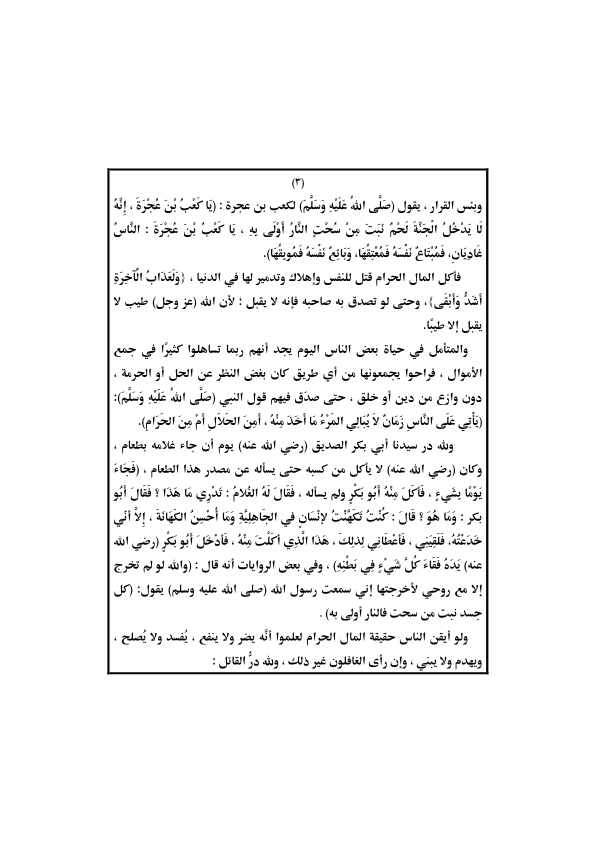 (٣)
وبئس القرار ، يقول (صَلَّى اللهُ عَلَيْهِ وَسَلَّمَ) لكعب بن عجرة : (يَا كَعْبُ بْنَ عُجْرَةَ ، إِنَّهُ
لَا يَدْخُلُ الْجَنَّةَ لَحْمٌ نَبَتَ مِنْ سُحْتٍ النَّارُ أَوْلَى بِهِ ، يَا كَعْبُ بْنَ عُجْرَةَ : النَّاسُ
غَادِيَانِ، فَمُبْتَاعٌ نَفْسَهُ فَمُعْتِقُهَا، وَبَائِعٌ نَفْسَهُ فَمُوبِقُهَا).
فأكل المال الحرام قتل للنفس وإهلاك وتدمير لها في الدنيا ، {وَلَعَذَابُ الْآخِرَةِ
أَشَدُّ وَأَبْقَى}، وحتى لو تصدق به صاحبه فإنه لا يقبل ؛ لأن الله (عز وجل) طيب لا
يقبل إلا طيبًا.
والمتأمل في حياة بعض الناس اليوم يجد أنهم ربما تساهلوا كثيرًا في جمع
الأموال ، فراحوا يجمعونها من أي طريق كان بغض النظر عن الحل أو الحرمة ،
دون وازع من دين أو خلق ، حتى صدَق فيهم قول النبي (صَلَّى اللهُ عَلَيْهِ وَسَلَّمَ):
(يَأْتِي عَلَى النَّاسِ زَمَانٌ لاَ يُبَالِي المَرْءُ مَا أَخَذَ مِنْهُ ، أَمِنَ الحَلاَلِ أَمْ مِنَ الحَرَامِ).
ولله در سيدنا أبي بكر الصديق (رضي الله عنه) يوم أن جاء غلامه بطعام ،
وكان (رضي الله عنه) لا يأكل من كسبه حتى يسأله عن مصدر هذا الطعام ، (فَجَاءَ
يَوْمًا بِشَيْءٍ ، فَأَكَلَ مِنْهُ أَبُو بَكْرٍ ولم يسأله ، فَقَالَ لَهُ الغُلاَمُ : تَدْرِي مَا هَذَا ؟ فَقَالَ أَبُو
بكر : وَمَا هُوَ ؟ قَالَ : كُنْتُ تَكَهَّنْتُ لِإِنْسَانٍ فِي الجَاهِلِيَّةِ وَمَا أُحْسِنُ الكَهَانَةَ ، إِلاَّ أَنِّي
خَدَعْتُهُ، فَلَقِيَنِي ، فَأَعْطَانِي لِذلِكَ ، هَذَا الَّذِي أَكَلْتَ مِنْهُ ، فَأَدْخَلَ أَبُو بَكْرٍ (رضي الله
عنه) يَدَهُ فَقَاءَ كُلَّ شَيْءٍ فِي بَطْنِهِ) ، وفي بعض الروايات أنه قال : (والله لو لم تخرج
إلا مع روحي لأخرجتها إني سمعت رسول الله (صلى الله عليه وسلم) يقول: (كل
جسد نبت من سحت فالنار أولى به) .
ولو أيقن الناس حقيقة المال الحرام لعلموا أنَّه يضر ولا ينفع ، يُفسد ولا يُصلح ،
ويهدم ولا يبني ، وإن رأى الغافلون غير ذلك ، ولله درُّ القائل :